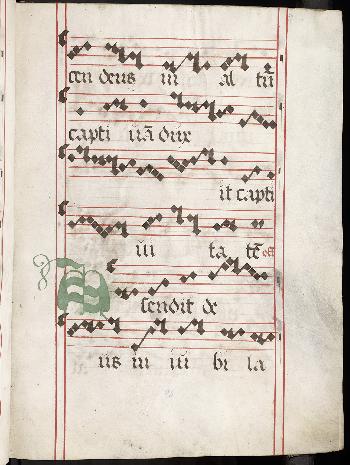 cen dens in al tū
capti uā dux
it capti
ui ta tē off
A scendit de
us in iu bi la